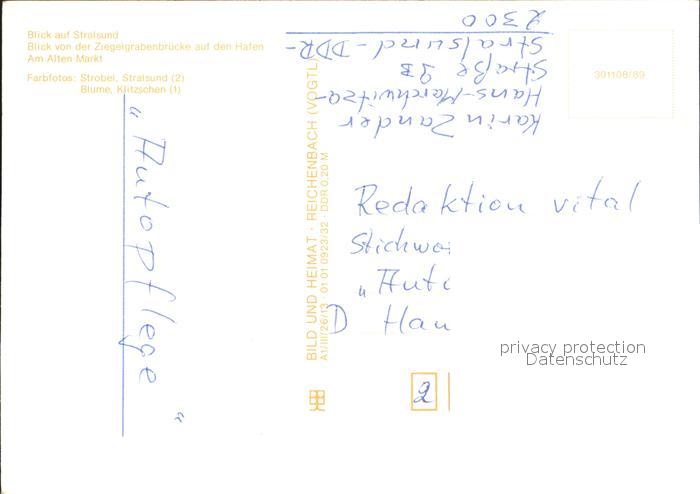 Blick auf Stralsund
Blick von der Ziegelgrabenbrücke auf den Hafen
Am Alten Markt
Farbfotos: Strobel, Stralsund (2)
Blume, Klitzschen (1)
„Autopflege“
BILD UND HEIMAT · REICHENBACH (VOGTL)
A1/III/26/13 01 01 0923/32 · DDR 0,20 M
Karin Zander
Hans-Marchwitza-
Straße 9B
Stralsund - DDR -
2300
301108/89
Redaktion vital
Stichwo
„Aut
D Han
2
privacy protection
Datenschutz